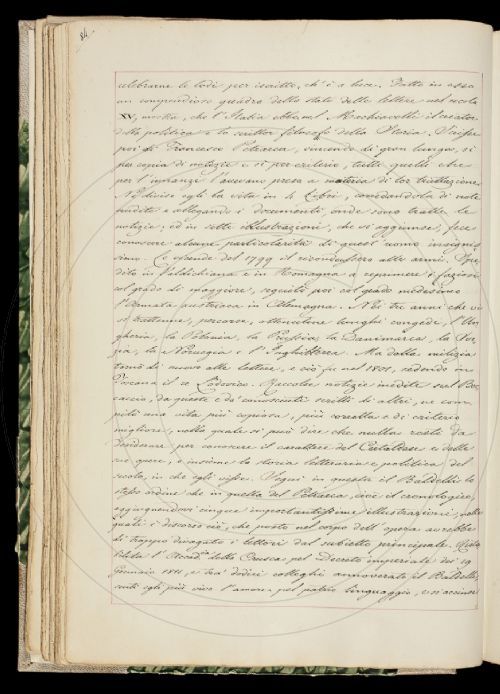 84
celebrarne le lodi per iscritto, ch'è a luce. Fatto in esso
un compendioso quadro dello stato delle lettere nel secolo
XV, mostra, che l'Italia ebbe nel Machiavelli il creator
della politica e lo scrittor filosofo della Storia. Scrisse
poi di Francesco Petrarca, vincendo di gran lunga, sì
per copia di notizie e sì per criterio, tutti quelli che
per l'innanzi l'aveano presa a materia di lor trattazione.
Nè divise egli la vita in 4 Libri, corredandola di note
inedite e allegando i documenti onde sono tratte le
notizie; ed in sette illustrazioni, che vi aggiunse, fece
conoscere alcune particolarità di quest'uomo insignis
simo. Le vicende del 1799 il ricondussero alle armi.
dito in Valdichiana e in Romagna a reprimere i faziosi
col grado di maggiore, seguitò poi col grado medesimo
l'Armata austriaca in Alemagna. Nei tre anni che vi
si trattenne, percorse, ottenutine lunghi congedi, l'Un
gheria, la Polonia, la Prussia, la Danimarca, la Sve
zia, la Norvegia e l'Inghilterra. Ma dalla milizia
tornò di nuovo alle lettere, e ciò fu nel 1801, sedendo in
Toscana il re Lodovico. Raccolse notizie inedite sul Boc
caccio, da queste e da' conosciuti scritti di altri, ne com
pilò una vita più copiosa, più corretta e di criterio
migliore, nella quale si può dire che nulla resti da
desiderare per conoscere il carattere del Certaldese e delle
sue opere, e insieme la storia letteraria e politica del
secolo, in che egli visse. Seguì in questa il Baldelli lo
stesso ordine che in quella del Petrarca, cioè il cronologico,
aggiungendovi cinque importantissime illustrazioni, nelle
quali è discorso ciò, che posto nel corpo dell'opera avrebbe
di troppo divagato i lettori dal subietto principale. Rista
bilita l'Accad.a della Crusca pel Decreto imperiale dei 19
Gennaio 1811, e tra' dodici colleghi annoverato il Baldelli,
sentì egli più vivo l'amore pel patrio linguaggio, e